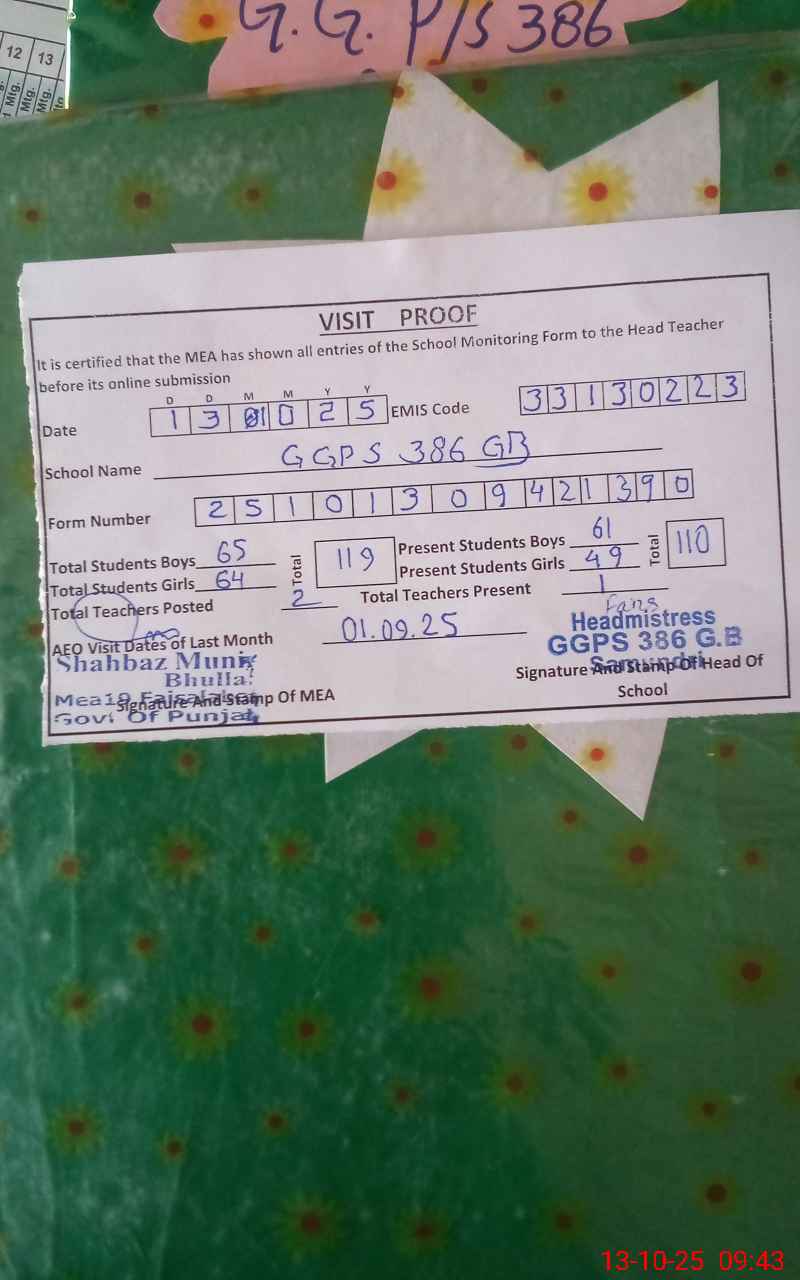 G.G. P/S 386
12 13
Mtg. Mtg. Mtg.
VISIT PROOF
It is certified that the MEA has shown all entries of the School Monitoring Form to the Head Teacher
before its online submission
D D M M Y Y
Date 1 3 1 0 2 5 EMIS Code 3 3 1 3 0 2 2 3
School Name GGPS 386 GB
Form Number 2 5 1 0 1 3 0 9 4 2 1 3 9 0
Total Students Boys 65 Total 119 Present Students Boys 61 Total 110
Total Students Girls 64 Present Students Girls 49
Total Teachers Posted 2 Total Teachers Present 1
AEO Visit Dates of Last Month 01.09.25
Headmistress
GGPS 386 G.B
Samundri
Shahbaz Munir
Bhulla
Mea19 Faisalabad
Govt Of Punjab
Signature And Stamp Of MEA
Signature And Stamp Of Head Of
School
13-10-25 09:43